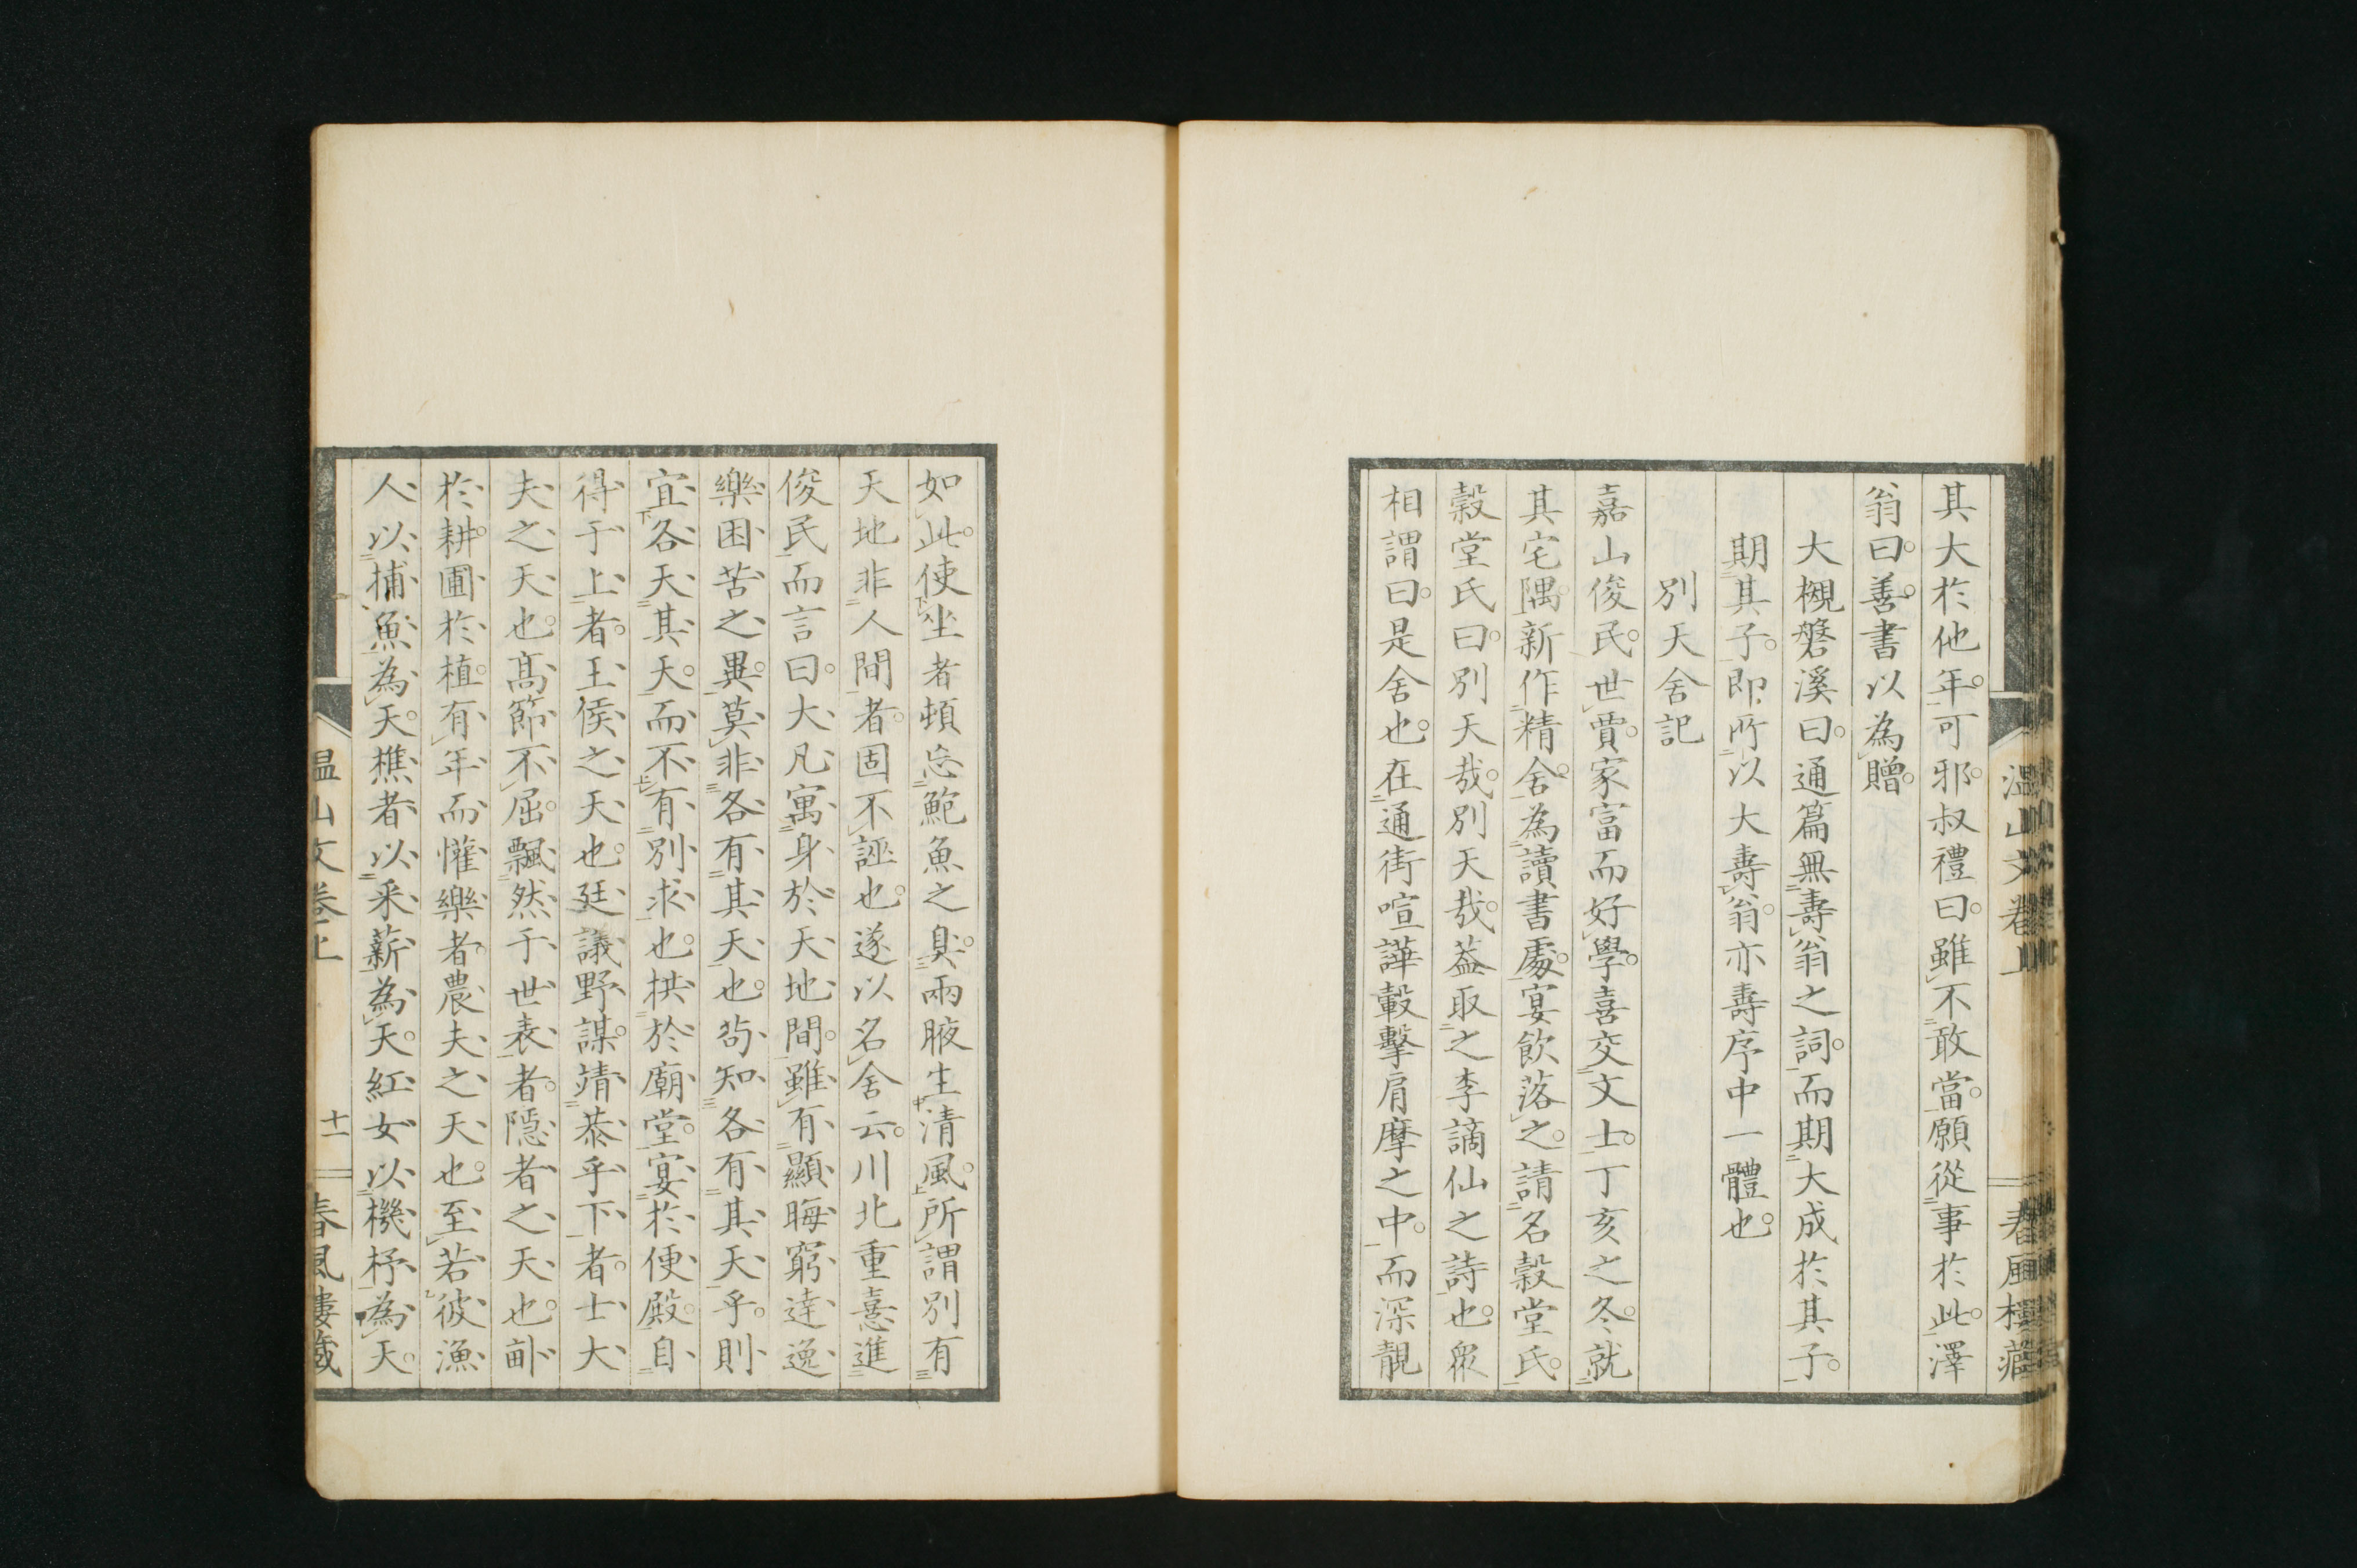 其大於他年。可邪。叔禮曰。雖不敢當。願從事於此。澤
翁曰。善。書以為贈。
大槻磐溪曰。通篇無壽翁之詞。而期大成於其子。
期其子。即所以大壽翁。亦壽序中一體也。
別天舍記
嘉山俊民。世賈。家富而好學。喜交文士。丁亥之冬。就
其宅隅。新作精舍。為讀書處。宴飲落之。請名穀堂氏。
穀堂氏曰。別天哉。別天哉。葢取之李謫仙之詩也。眾
相謂曰。是舍也。在通街喧譁轂擊肩摩之中。而深靚
如此。使坐者頓忘鮑魚之臭。兩腋生清風。所謂別有
天地非人間者。固不誣也。遂以名舍云。川北重憙進
俊民而言曰。大凡寓身於天地間。雖有顯晦窮達逸
樂困苦之異。莫非各有其天也。苟知各有其天乎。則
宜各天其天。而不有別求也。拱於廟堂。宴於便殿。自
得于上者。王侯之天也。廷議野謀。靖恭乎下者。士大
夫之天也。高節不屈。飄然于世表者。隱者之天也。畊
於耕。圃於植。有年而懽樂者。農夫之天也。至若彼漁
人以捕魚為天。樵者以采薪為天。紅女以機杼為天。
溫山文卷上
十一
春風樓藏
溫山文卷上
春風樓藏